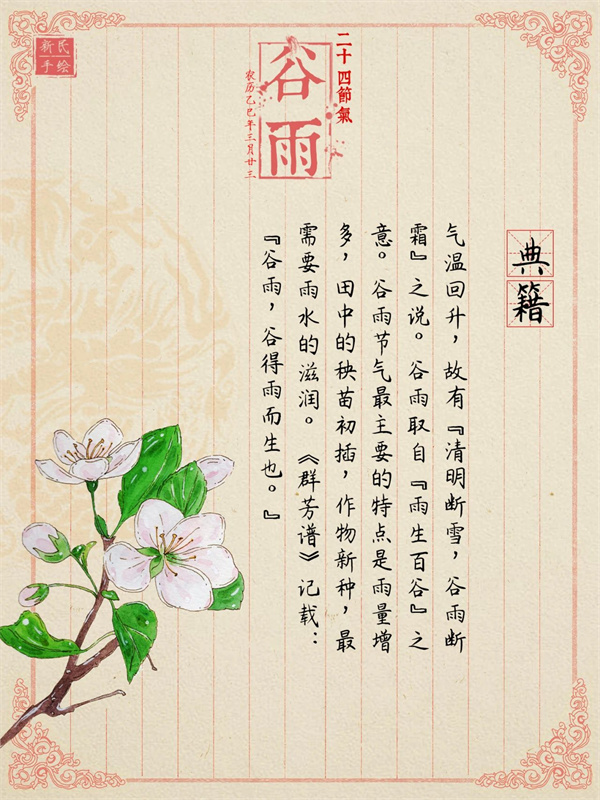 二十四節氣
谷雨
农历乙巳年三月廿三
新氏
手绘
典籍
气温回升，故有『清明断雪，谷雨断
霜』之说。谷雨取自『雨生百谷』之
意。谷雨节气最主要的特点是雨量增
多，田中的秧苗初插，作物新种，最
需要雨水的滋润。《群芳谱》记载：
『谷雨，谷得雨而生也。』